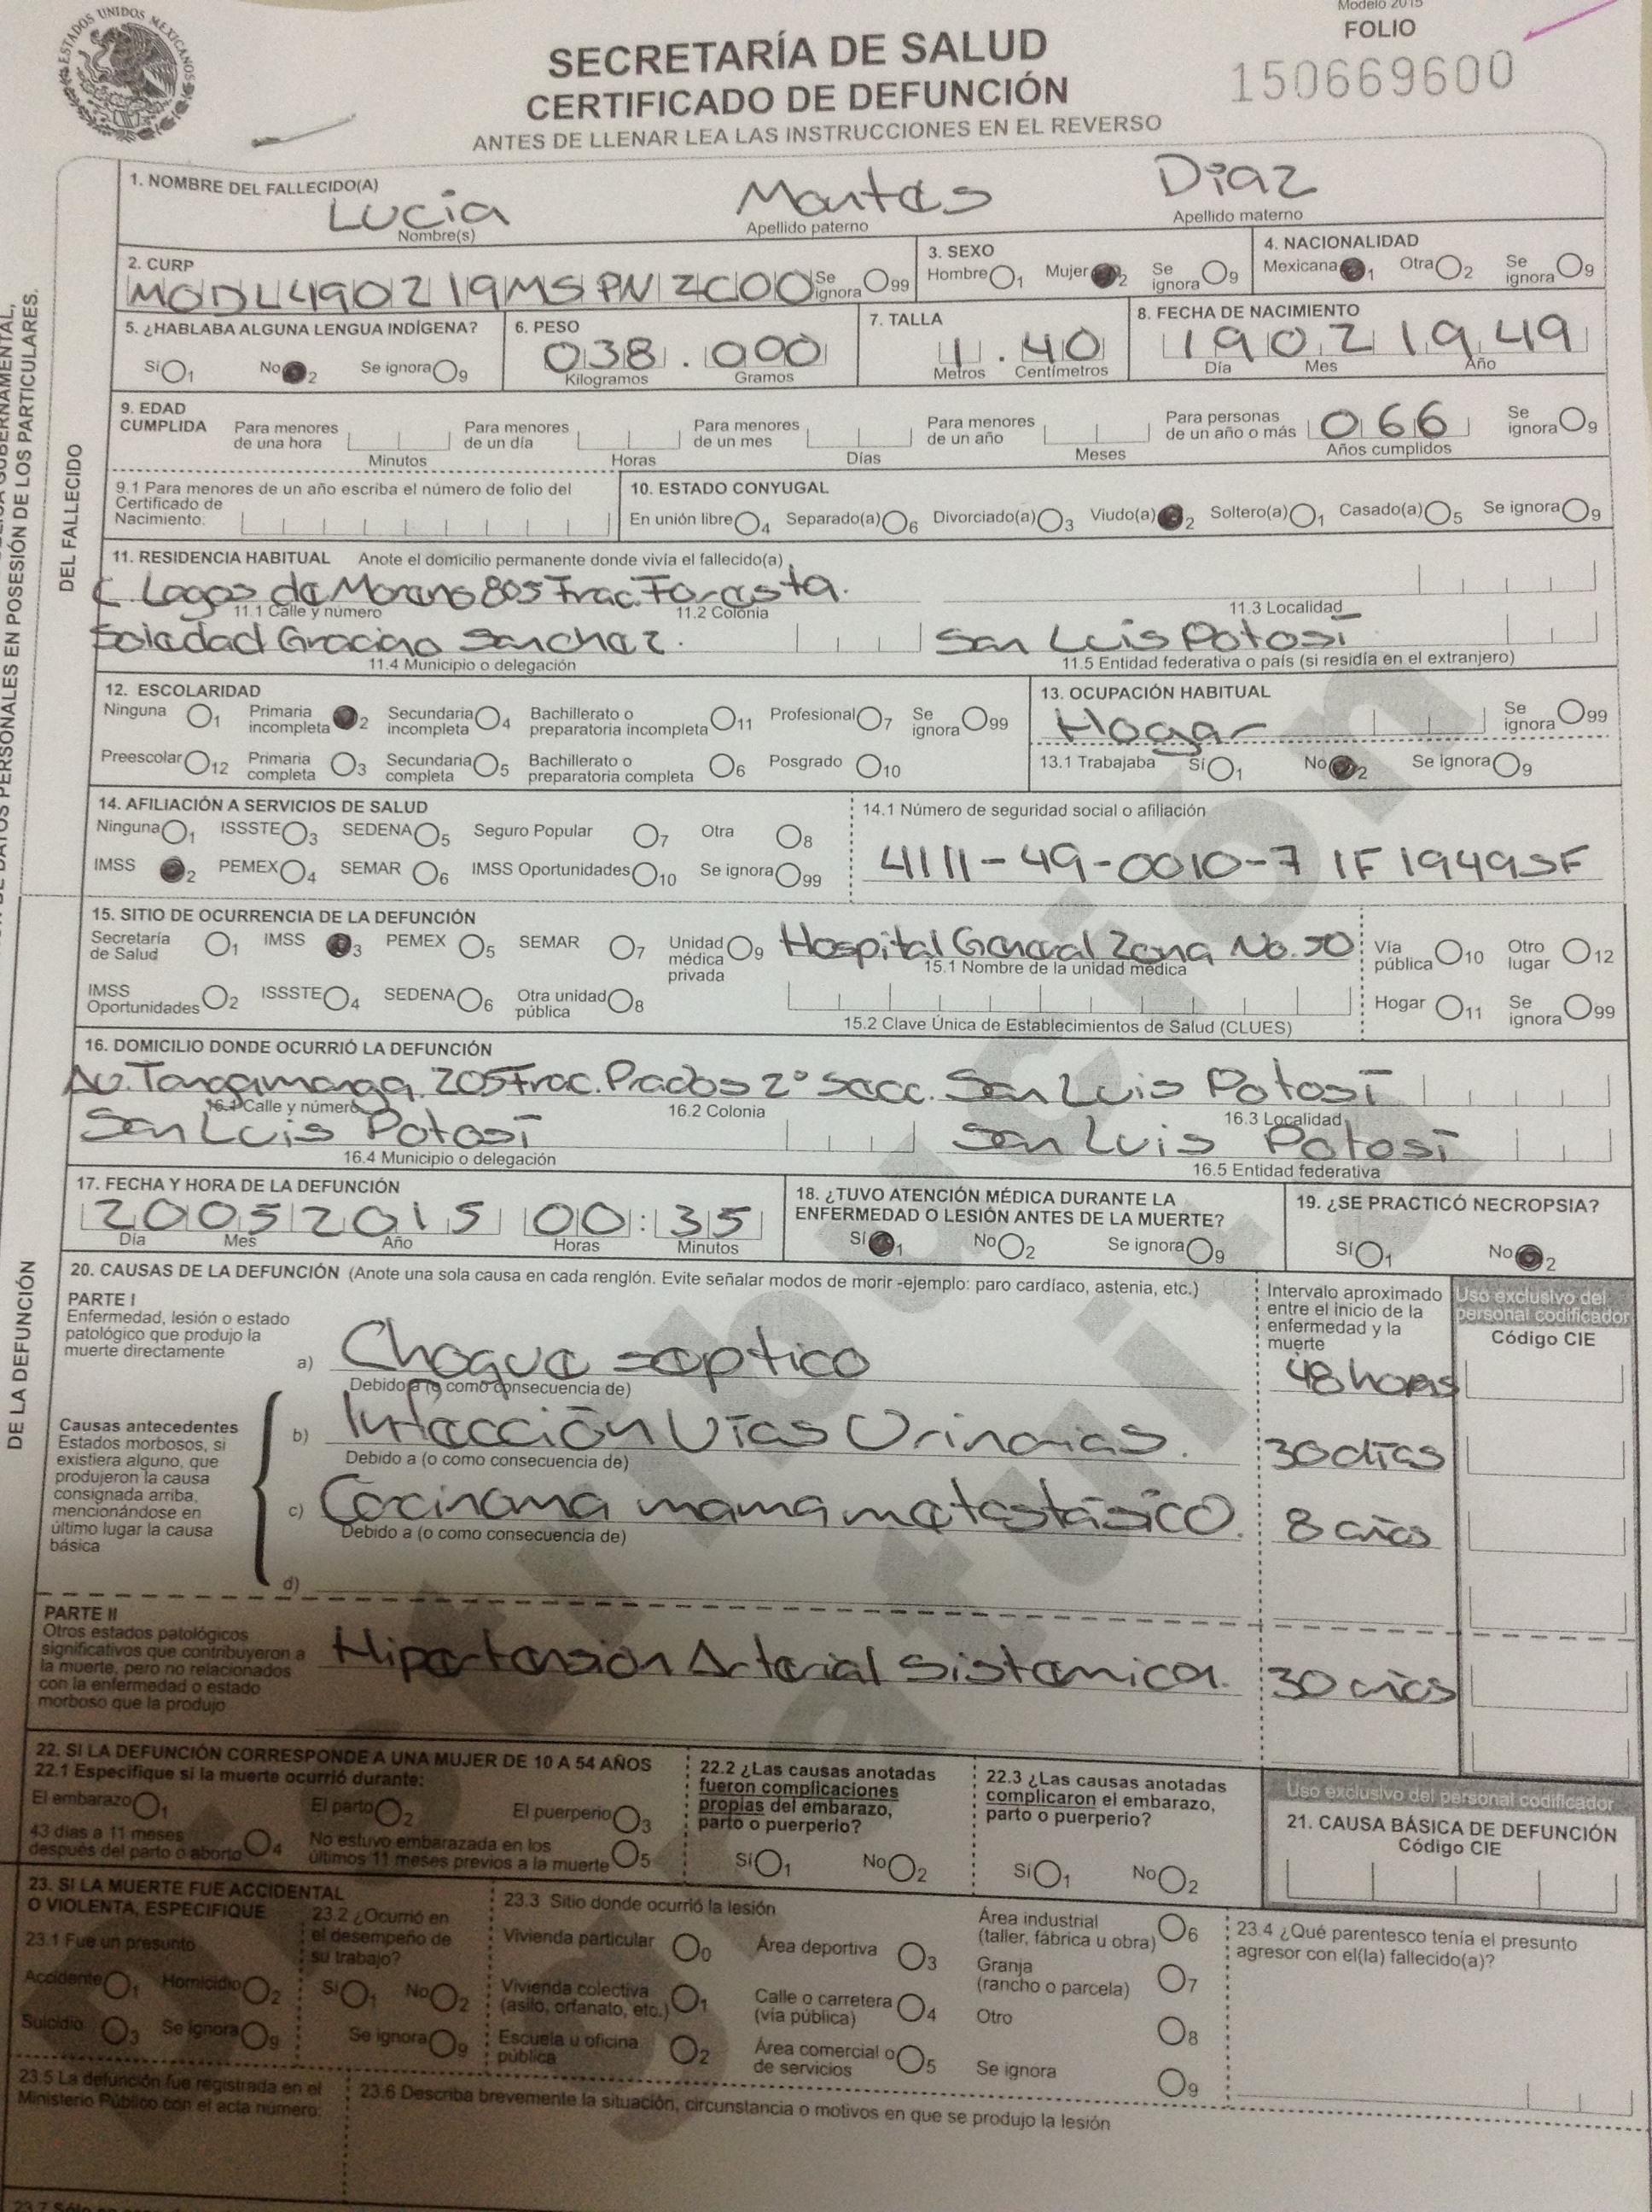 Modelo 2015
ESTADOS UNIDOS MEXICANOS
SECRETARÍA DE SALUD
FOLIO
CERTIFICADO DE DEFUNCIÓN
150669600
ANTES DE LLENAR LEA LAS INSTRUCCIONES EN EL REVERSO
DEL FALLECIDO
1. NOMBRE DEL FALLECIDO(A)
Lucia Montes Diaz
Nombre(s) Apellido paterno Apellido materno
2. CURP
MODL490219MSPNZC00 Se ignora 99
3. SEXO
Hombre 1 Mujer 2 Se ignora 9
4. NACIONALIDAD
Mexicana 1 Otra 2 Se ignora 9
5. ¿HABLABA ALGUNA LENGUA INDÍGENA?
Sí 1 No 2 Se ignora 9
6. PESO
038 . 000
Kilogramos Gramos
7. TALLA
1 . 40
Metros Centímetros
8. FECHA DE NACIMIENTO
19 02 1949
Día Mes Año
9. EDAD CUMPLIDA
Para menores de una hora Minutos
Para menores de un día Horas
Para menores de un mes Días
Para menores de un año Meses
Para personas de un año o más 066 Años cumplidos
Se ignora 9
9.1 Para menores de un año escriba el número de folio del
Certificado de
Nacimiento:
10. ESTADO CONYUGAL
En unión libre 4 Separado(a) 6 Divorciado(a) 3 Viudo(a) 2 Soltero(a) 1 Casado(a) 5 Se ignora 9
11. RESIDENCIA HABITUAL Anote el domicilio permanente donde vivía el fallecido(a)
C Lagos de Moreno 805 Frac. Foresta.
11.1 Calle y número 11.2 Colonia 11.3 Localidad
Soledad Graciano Sanchez. San Luis Potosí
11.4 Municipio o delegación 11.5 Entidad federativa o país (si residía en el extranjero)
12. ESCOLARIDAD
Ninguna 1 Primaria incompleta 2 Secundaria incompleta 4 Bachillerato o preparatoria incompleta 11 Profesional 7 Se ignora 99
Preescolar 12 Primaria completa 3 Secundaria completa 5 Bachillerato o preparatoria completa 6 Posgrado 10
13. OCUPACIÓN HABITUAL
Hogar Se ignora 99
13.1 Trabajaba Sí 1 No 2 Se ignora 9
14. AFILIACIÓN A SERVICIOS DE SALUD
Ninguna 1 ISSSTE 3 SEDENA 5 Seguro Popular 7 Otra 8
IMSS 2 PEMEX 4 SEMAR 6 IMSS Oportunidades 10 Se ignora 99
14.1 Número de seguridad social o afiliación
4111-49-0010-7 1F1949SF
DE LA DEFUNCIÓN
15. SITIO DE OCURRENCIA DE LA DEFUNCIÓN
Secretaría de Salud 1 IMSS 3 PEMEX 5 SEMAR 7 Unidad médica privada 9
Hospital General Zona No. 50
15.1 Nombre de la unidad médica
Vía pública 10 Otro lugar 12
IMSS Oportunidades 2 ISSSTE 4 SEDENA 6 Otra unidad pública 8
15.2 Clave Única de Establecimientos de Salud (CLUES)
Hogar 11 Se ignora 99
16. DOMICILIO DONDE OCURRIÓ LA DEFUNCIÓN
Av. Tangamanga 205 Frac. Prados 2° Secc. San Luis Potosí
16.1 Calle y número 16.2 Colonia 16.3 Localidad
San Luis Potosí San Luis Potosí
16.4 Municipio o delegación 16.5 Entidad federativa
17. FECHA Y HORA DE LA DEFUNCIÓN
20 05 2015 00 : 35
Día Mes Año Horas Minutos
18. ¿TUVO ATENCIÓN MÉDICA DURANTE LA
ENFERMEDAD O LESIÓN ANTES DE LA MUERTE?
Sí 1 No 2 Se ignora 9
19. ¿SE PRACTICÓ NECROPSIA?
Sí 1 No 2
20. CAUSAS DE LA DEFUNCIÓN (Anote una sola causa en cada renglón. Evite señalar modos de morir -ejemplo: paro cardíaco, astenia, etc.)
Intervalo aproximado
entre el inicio de la
enfermedad y la
muerte
Uso exclusivo del
personal codificador
Código CIE
PARTE I
Enfermedad, lesión o estado
patológico que produjo la
muerte directamente
a) Choque septico 48 horas
Debido a (o como consecuencia de)
Causas antecedentes
Estados morbosos, si
existiera alguno, que
produjeron la causa
consignada arriba,
mencionándose en
último lugar la causa
básica
b) Infección Vías Urinarias. 30 días
Debido a (o como consecuencia de)
c) Carcinoma mama metastásico. 8 años
Debido a (o como consecuencia de)
d)
PARTE II
Otros estados patológicos
significativos que contribuyeron a
la muerte, pero no relacionados
con la enfermedad o estado
morboso que la produjo
Hipertensión Arterial Sistemica. 30 años
22. SI LA DEFUNCIÓN CORRESPONDE A UNA MUJER DE 10 A 54 AÑOS
22.1 Especifique si la muerte ocurrió durante:
El embarazo 1 El parto 2 El puerperio 3
43 días a 11 meses después del parto o aborto 4 No estuvo embarazada en los últimos 11 meses previos a la muerte 5
22.2 ¿Las causas anotadas
fueron complicaciones
propias del embarazo,
parto o puerperio?
Sí 1 No 2
22.3 ¿Las causas anotadas
complicaron el embarazo,
parto o puerperio?
Sí 1 No 2
Uso exclusivo del personal codificador
21. CAUSA BÁSICA DE DEFUNCIÓN
Código CIE
23. SI LA MUERTE FUE ACCIDENTAL
O VIOLENTA, ESPECIFIQUE
23.1 Fue un presunto
Accidente 1 Homicidio 2
Suicidio 3 Se ignora 9
23.2 ¿Ocurrió en
el desempeño de
su trabajo?
Sí 1 No 2
Se ignora 9
23.3 Sitio donde ocurrió la lesión
Vivienda particular 0 Área deportiva 3 Área industrial (taller, fábrica u obra) 6
Vivienda colectiva (asilo, orfanato, etc.) 1 Calle o carretera (vía pública) 4 Granja (rancho o parcela) 7
Otro 8
Escuela u oficina pública 2 Área comercial o de servicios 5 Se ignora 9
23.4 ¿Qué parentesco tenía el presunto
agresor con el(la) fallecido(a)?
23.5 La defunción fue registrada en el
Ministerio Público con el acta número:
23.6 Describa brevemente la situación, circunstancia o motivos en que se produjo la lesión